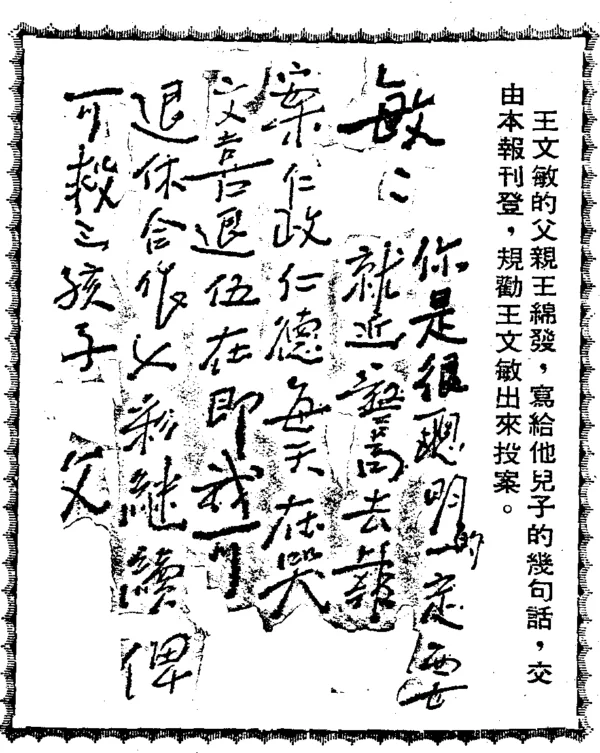 王文敏的父親王綿發，寫給他兒子的幾句話，交
由本報刊登，規勸王文敏出來投案。
敏〻
你是很聰明的一定要
就近警局去報
案仁政仁德每天在哭
文喜退伍在即我可
退休合 父 繼續俾
可救 孩子 父